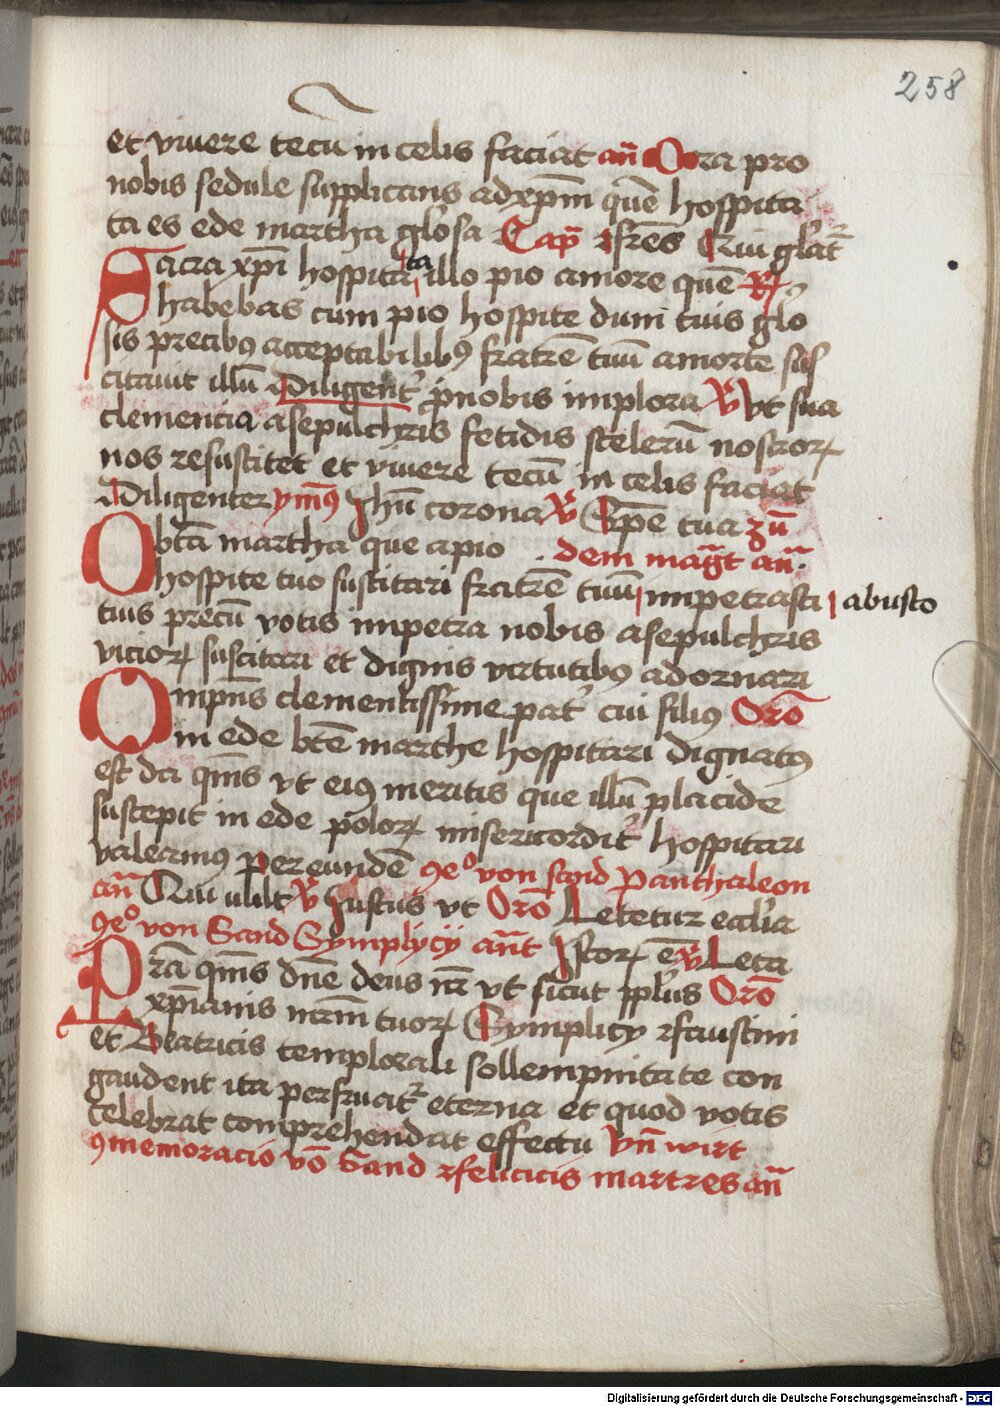 258
et viuere tecū in celis faciat an̄ Ora pro
nobis sedule supplicans ad xp̄m quē hospita
ta es ede martha gl'osa Cap̄ Fres Qui gl'at᷑
Sacra xp̄i hospita ta illo pio amore quē R
habebas cum pio hospite dum tuis glo
sis precibꝰ acceptabilibꝰ fratrē tuū a morte sus
citauit illū Diligent' p nobis implora V̄ Vt sua
clemencia a sepulchris fetidis scelerū nostroꝝ
nos resuscitet et viuere tecū in celis faciat
Diligenter ym̄ꝰ Jhū corona V̄ Spē tua zū
Obtā martha que a pio dem maḡt an̄.
hospite tuo suscitari fratrē tuū impetrasti abusto
tuis precū votis impetra nobis a sepulchris
vicioꝝ suscitari et dignis virtutibꝰ adornari
Omp̄ns clementissime pat' cui filiꝰ Orō
in ede btē marthe hospitari dignatꝰ
est da qm̄s vt eiꝰ meritis que illū placide
suscepit in ede poloꝝ misericordit' hospitari
valeamꝰ Per eundē ꝯeᵒ von sand Panthaleon
an̄ Qui vult V̄ Justus vt Orō Letetur eccl'ia
ꝯeᵒ von Sand Symplycij an̄t Istoꝝ ē V̄ Leta
Prā qm̄s dn̄e deus nr̄ vt sicut pp̄lus Orō
xp̄ianis mr̄m tuoꝝ Symplicy Faustini
et Beatricis temporali sollempnitate con
gaudent ita perfruat᷑ eterna et quod votis
celebrat comprehendat effectu Vn̄ wirt
ꝯmemoracio vō Sand Felicicis martres an̄
Digitalisierung gefördert durch die Deutsche Forschungsgemeinschaft - DFG